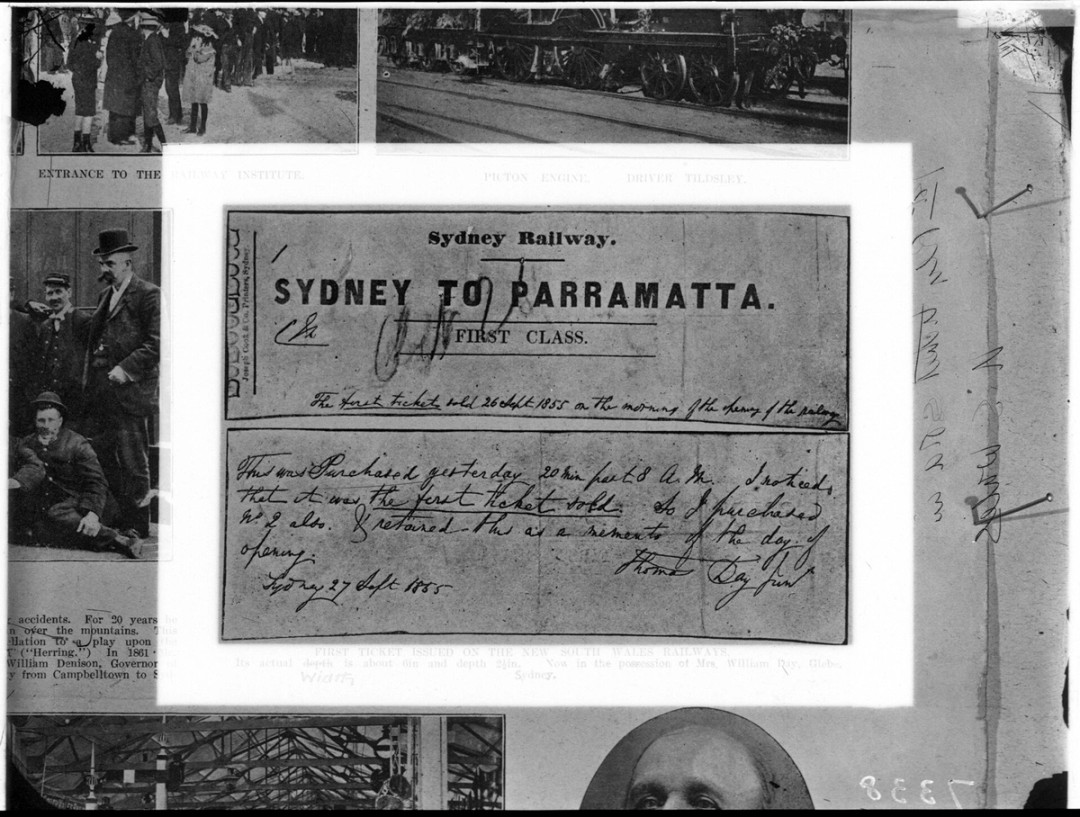 ENTRANCE TO THE RAILWAY INSTITUTE.
PICTON ENGINE. DRIVER TILDSLEY.
Sydney Railway.
SYDNEY TO PARRAMATTA.
FIRST CLASS.
Joseph Cook & Co. Printers, Sydney.
The first ticket sold 26 Sept 1855 on the morning of the opening of the railway
This was Purchased yesterday 20 min past 8 A.M. I noticed
that it was the first ticket sold. So I purchased
No. 2 also. & retained this as a memento of the day of
opening.
Thomas Day Junr
Sydney 27 Sept 1855
FIRST TICKET ISSUED ON THE NEW SOUTH WALES RAILWAYS.
Its actual depth is about 6in and depth 2½in. Now in the possession of Mrs. William Day, Glebe,
Width
Sydney.
accidents. For 20 years
over the mountains.
to a play upon
("Herring.") In 1861
William Denison, Governor
from Campbelltown to
7338